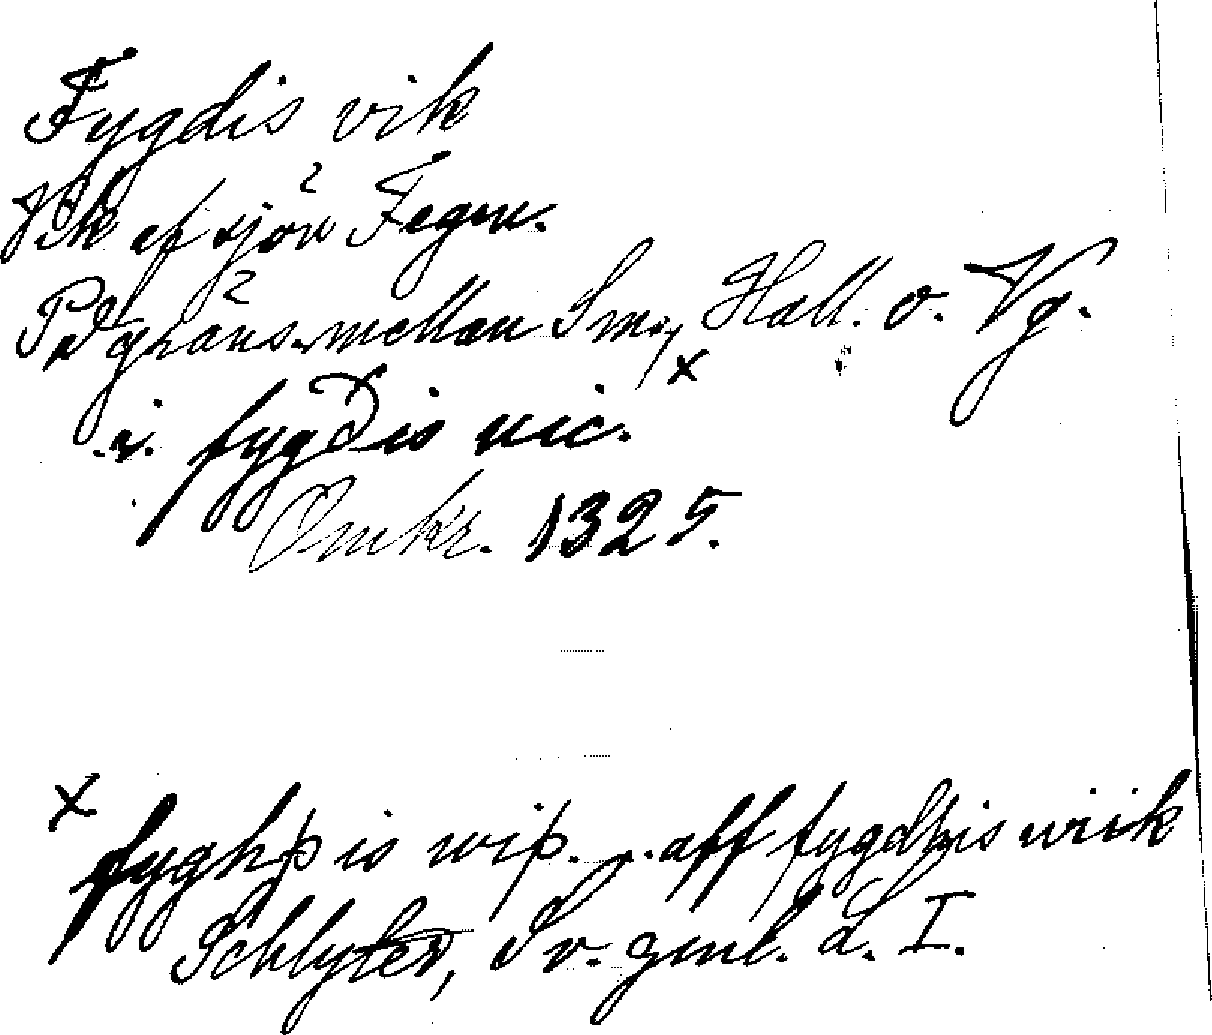 Fygdis vik
Vik af sjön Fegen.
På gräns. mellan Sm., Hall. o. Vg.
.i. fygðis uic. x
Omkr. 1325.
x fyghþ is wiþ. . . aff fygdhis wiik
Schlyter, Sv. gml. L. I.